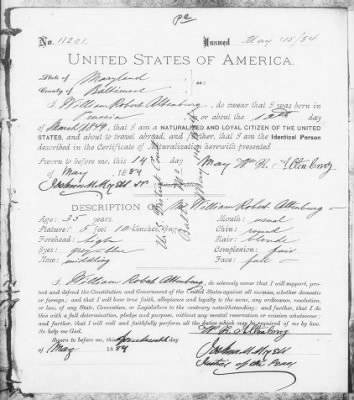 No. 11201. Issued May 15/84
UNITED STATES OF AMERICA.
State of Maryland
County of Baltimore } ss:
I, William Robert Altenburg, do swear that I was born in
Prussia on or about the 12th day
of March 1849, that I am a NATURALIZED AND LOYAL CITIZEN OF THE UNITED
STATES, and about to travel abroad, and further, that I am the Identical Person
described in the Certificate of Naturalization herewith presented
Sworn to before me, this 14 day May Wm R. Altenburg
of May, 1884
DESCRIPTION OF Mr William Robert Altenburg
Age: 35 years Mouth: usual
Stature: 5 feet 10 inches, Eng. Chin: round
Forehead: high Hair: blonde
Eyes: grey blue Complexion: fair
Nose: middling Face: full
I, William Robert Altenburg, do solemnly swear that I will support, pro-
tect and defend the Constitution and Government of the United States against all enemies, whether domestic
or foreign; and that I will bear true faith, allegiance and loyalty to the same, any ordinance, resolution,
or law, of any State, Convention, or Legislature to the contrary notwithstanding; and further, that I do
this with a full determination, pledge and purpose, without any mental reservation or evasion whatsoever
and further, that I will well and faithfully perform all the duties which may be required of me by law.
So help me God. Wm R. Altenburg
Sworn to before me, this fourteenth day
of May 1884
Justice of the Peace